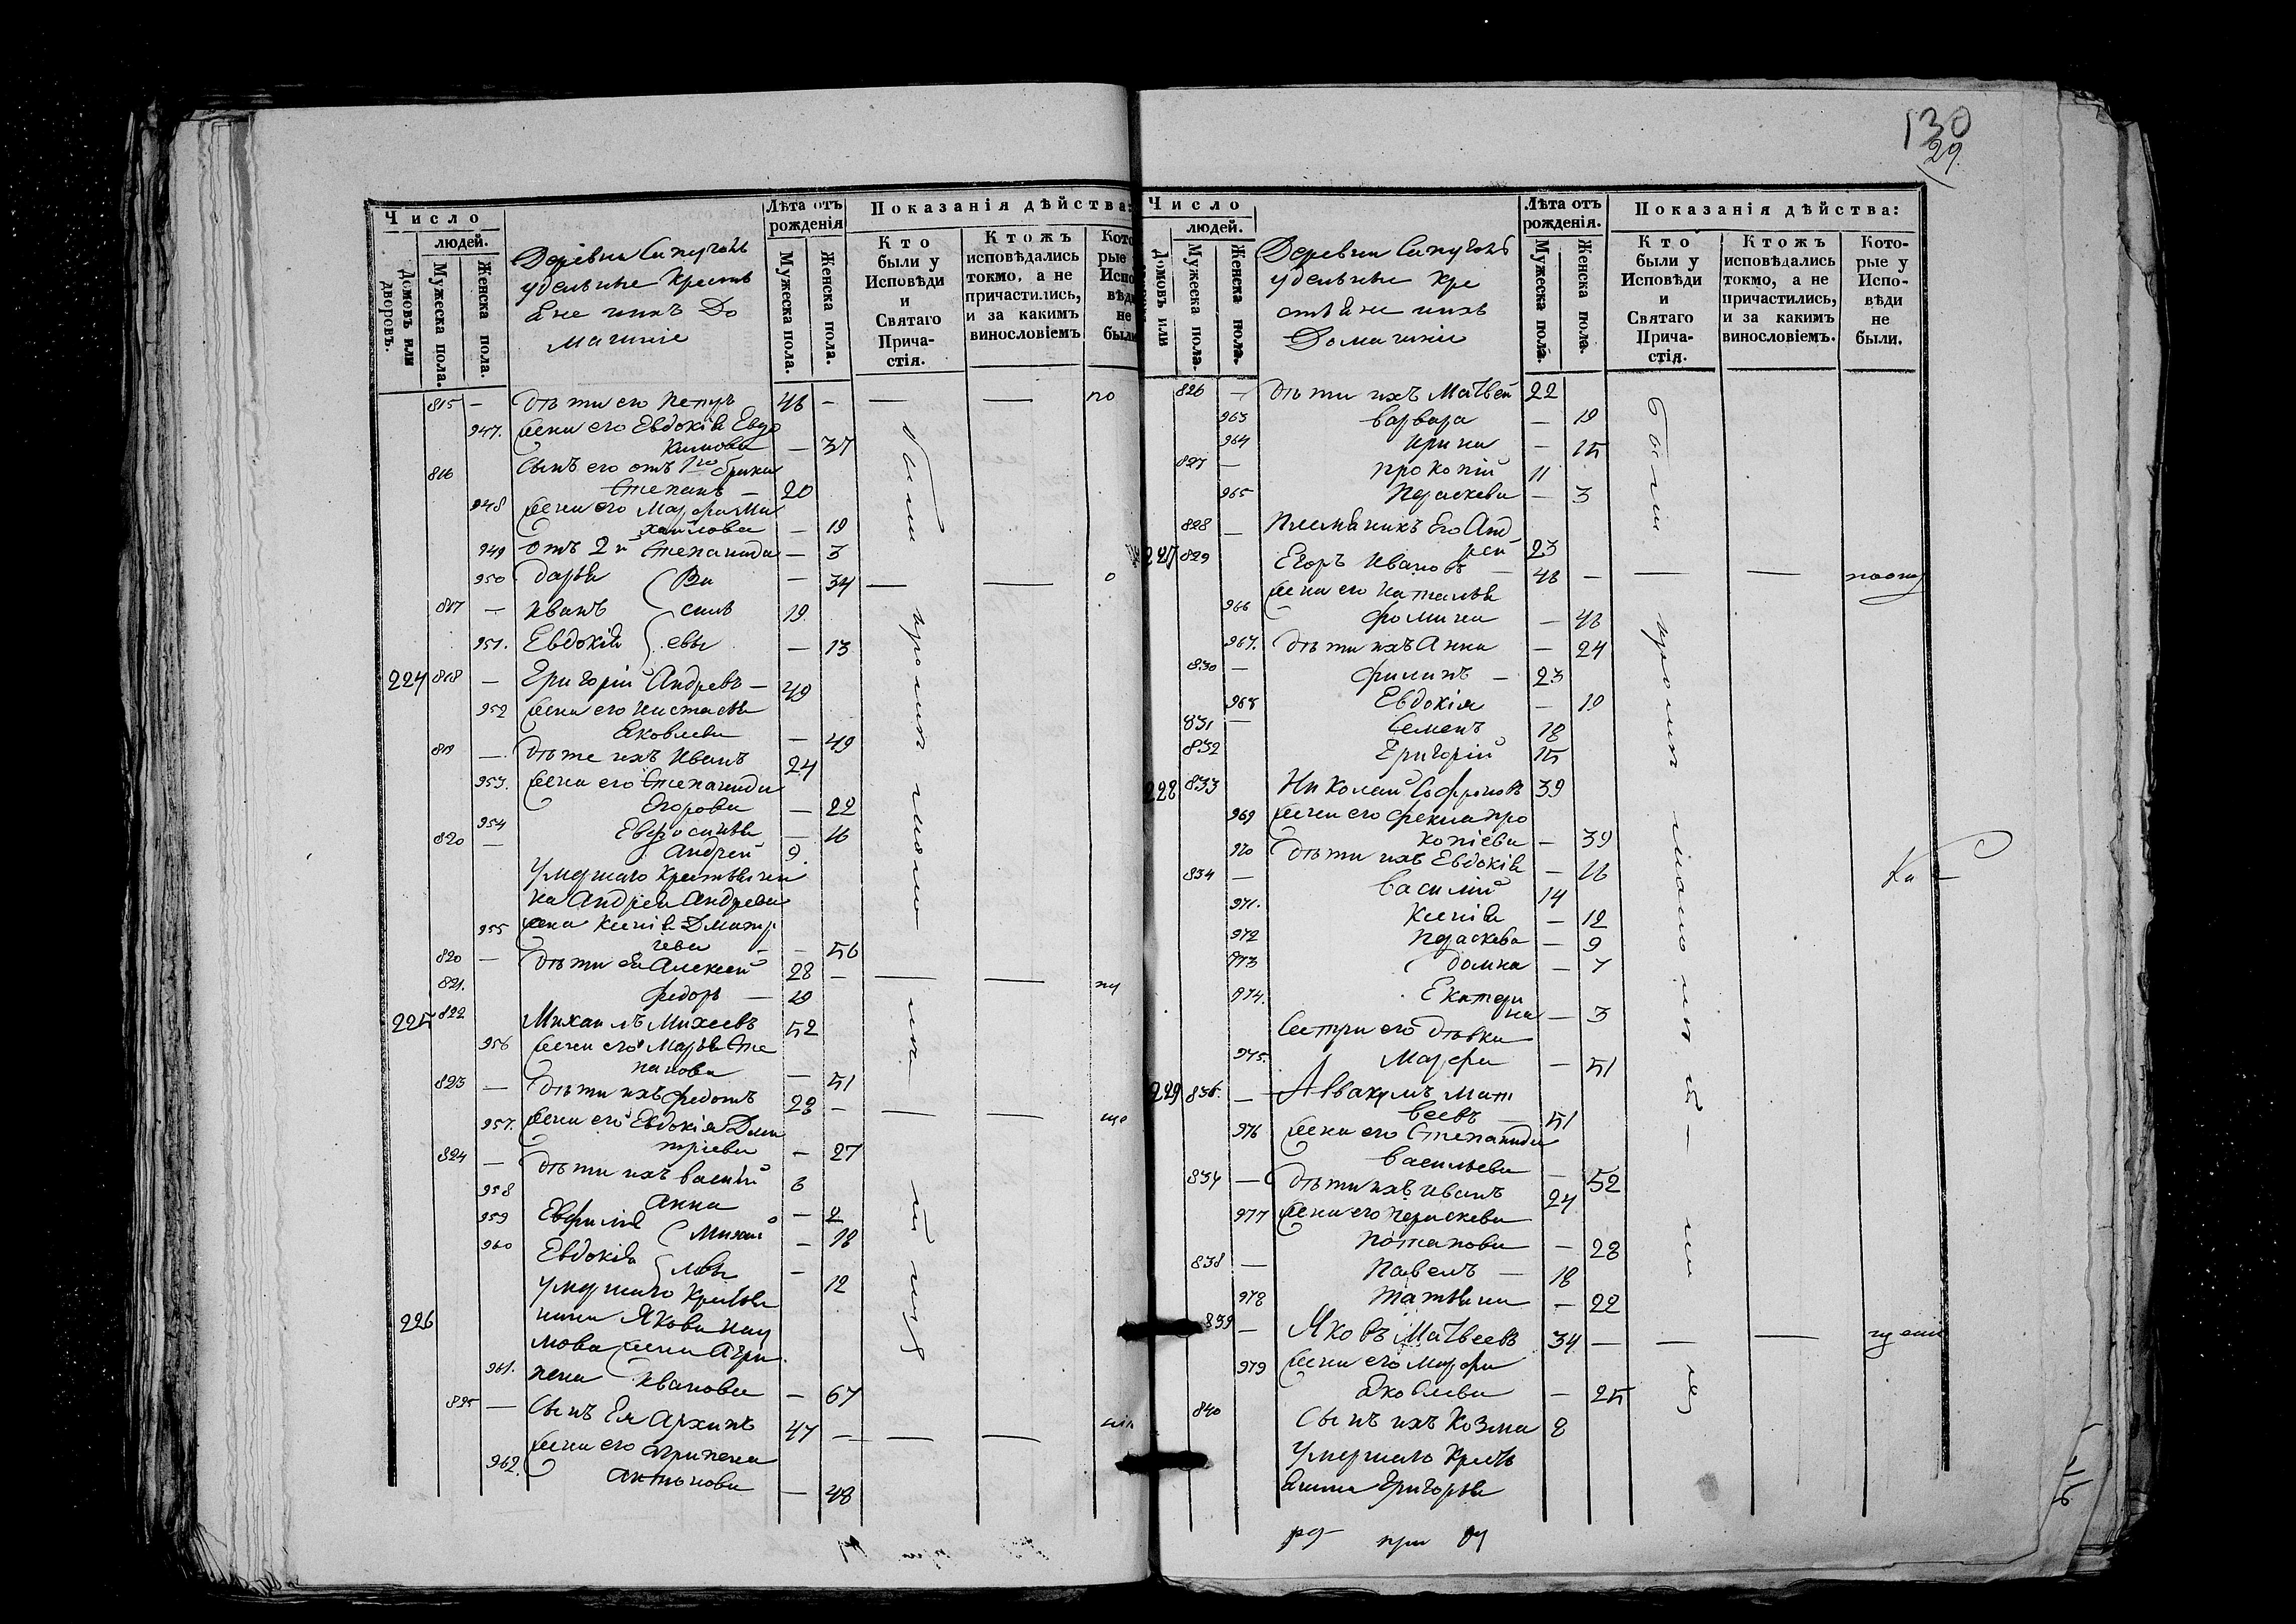 130
29
Число
людей.
Домовъ или дворовъ.
Мужеска пола.
Женска пола.
Лѣта отъ рожденія
Мужеска пола.
Женска пола.
Показанія дѣйства:
Кто были у Исповѣди и Святаго Прича-стія.
Ктожъ исповѣдались токмо, а не причастились, и за какимъ винословіемъ
Деревни
удельные Кресть
яне ихъ До
машніе
815 — дѣти его 46 — — —
947. жена его Евдокія Евдо
кимова — 37
816 Сынъ его отъ 1го брака
Степанъ — 20
948 жена его Марфа Ми
хайлова — 19
949 отъ 2й Степанида — 3
950 Дарья Ва — 34 — —
817 — Иванъ силь 19
951. Евдокія евы — 13
224 818 — Григорій Андревъ — 49
952 жена его Настасья
Яковлева — 49
819 — дѣти ихъ Иванъ 24
953. жена его Степанида
Егорова — 22
954 Евфросинья — 16
820 — Андрей 9.
умершаго крестьяни
на Андрея Андреева
955 жена Ксенія Дмитр
іева — 56
820 — дѣти ея Алексей 28 — — —
821. Федоръ — 19
225 822 Михаилъ Михеевъ 52
956 жена его Марья Сте
панова — 51
823 — дѣти ихъ Федотъ 28 — — —
957. жена его Евдокія Дми
тріева — 27
824 — дѣти ихъ Василій 6
958 Анна — 2
959 Евфимія Михай — 18
960 Евдокія ловы — 12
умершаго крестья
226 нина Якова Нау
мова жена Агри
961. пена Иванова — 67
825 — Сынъ Ея Архипъ 47 — — —
962. жена его Агрипена
Антонова — 48
Число
людей.
Домовъ или
Мужеска пола.
Женска пола.
Лѣта отъ рожденія.
Мужеска пола.
Женска пола.
Показанія дѣйства:
Кто были у Исповѣди и Святаго Прича-стія.
Ктожъ исповѣдались токмо, а не причастились, и за какимъ винословіемъ.
Кото-рые у Испо-вѣди не были.
Деревни
удельные Кре
стьяне ихъ
Домашніе
826 — дѣти ихъ Матвей 22
963 Варвара — 19
964 Ирина — 15
827 — Прокопій 11
965 Параскева — 3
828 — Племяникъ Его Анд
рей 23
227 829 Егоръ Ивановъ — 46 — — —
966 жена его Наталья
Фомина — 46
967. дѣти ихъ Анна — 24
830 — Филипъ — 23
968 Евдокія — 19
831 — Семенъ 18
832 Григорій 15
228 833 Николай Софроновъ 39
969 жена его Фекла Про
копіева — 39
970 дѣти ихъ Евдокія — 16
834 — Василій 14
971. Ксенія — 12
972 Параскева — 9
973 Домна — 7
974. Екатери
на — 3
Сестра его дѣвка
975. Марфа — 51
229 836. — Аввакумъ Мат
веевъ — 51
976 жена его Степанида
Васильева — 52
834 — дѣти ихъ Иванъ 24
977 жена его Параскева
Потапова — 28
838 — Павелъ — 18
978 Татьяна — 22
839 — Яковъ Матвеевъ 34 — — —
979 жена его Марфа
Яковлева — 25
840 Сынъ ихъ Козма 8
умершаго кресть
янина Григорья